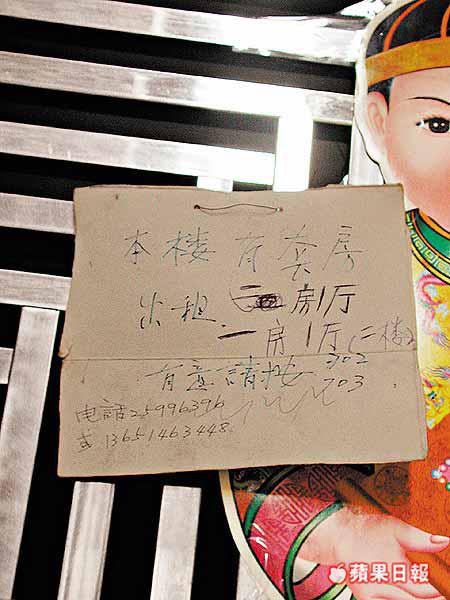 本楼有套房
出租. 二房1厅
一房1厅(二楼)
有意請按302
703
电話25996396
或13651463448
蘋果日報